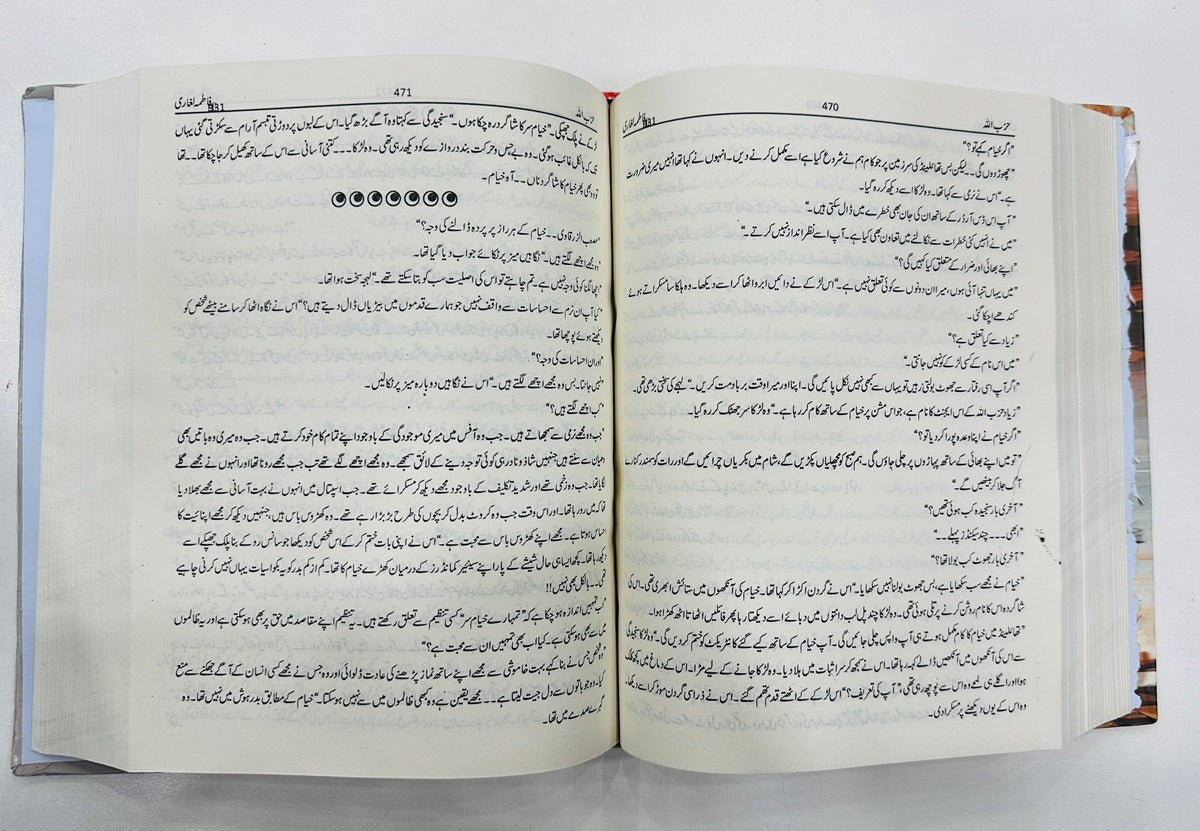 حزب اللہ
470
فاطمہ لغاری
"اگر خیام کہے تو؟"
"چھوڑ دوں گی۔۔۔ لیکن بس تھائلینڈ کی سرزمین پر جو کام ہم نے شروع کیا ہے اسے مکمل کرنے دیں۔ انہوں نے کہا تھا انہیں میری ضرورت
ہے۔" اس نے نرمی سے کہا تھا۔ وہ لڑکا اسے دیکھ کر رہ گیا۔
"آپ اس ڈس آرڈر کے ساتھ ان کی جان بھی خطرے میں ڈال سکتی ہیں۔"
"میں نے انہیں کئی خطرات سے نکالنے میں تعاون بھی کیا ہے۔ آپ اسے نظر انداز نہیں کرتے۔"
"اپنے بھائی اور ضرار کے متعلق کیا کہیں گی؟"
"میں یہاں تنہا آئی ہوں، میرا ان دونوں سے کوئی تعلق نہیں ہے۔" اس لڑکے نے دائیں ابرو اٹھا کر اسے دیکھا۔ وہ ہلکا سا مسکراتے ہوئے
کندھے اچکا گئی۔
"زیاد سے کیا تعلق ہے؟"
"میں اس نام کے کسی لڑکے کو نہیں جانتی۔"
"اگر آپ اسی رفتار سے جھوٹ بولتی رہیں تو یہاں سے کبھی نہیں نکل پائیں گی۔ اپنا اور میرا وقت برباد مت کریں۔" لہجے کی سختی بڑھی تھی۔
"زیاد حزب اللہ کے اس ایجنٹ کا نام ہے، جو اس مشن پر خیام کے ساتھ کام کر رہا ہے۔" وہ لڑکا سر جھٹک کر رہ گیا۔
"اگر خیام نے اپنا وعدہ پورا کر دیا تو؟"
"تو میں اپنے بھائی کے ساتھ پہاڑوں پر چلی جاؤں گی۔ ہم صبح کو مچھلیاں پکڑیں گے، شام میں بکریاں چرائیں گے اور رات کو سمندر کنارے
آگ جلا کر بیٹھیں گے۔"
"آخری بار سنجیدہ کب ہوئی تھیں؟"
"ابھی۔۔۔۔ چند سیکنڈز پہلے۔۔"
"آخری بار جھوٹ کب بولا تھا؟"
"خیام نے مجھے سب سکھایا ہے، بس جھوٹ بولنا نہیں سکھایا۔" اس نے گردن اکڑا کر کہا تھا۔ خیام کی آنکھوں میں ستائش ابھری تھی۔ اس کی
شاگردہ اس کا نام روشن کرنے پر تلی ہوئی تھی۔ وہ لڑکا چند پل لب دانتوں میں دبائے اسے دیکھتا رہا پھر فائلیں اٹھاتا اٹھ کھڑا ہوا۔
"تھائلینڈ میں خیام کا کام مکمل ہوتے ہی آپ واپس چلی جائیں گی۔ آپ خیام کے ساتھ کیے گئے کانٹریکٹ کو ختم کر دیں گی۔" وہ لڑکا سنجیدگی
سے اس کی آنکھوں میں آنکھیں ڈالے کہہ رہا تھا۔ اس نے سمجھ کر سر اثبات میں ہلا دیا۔ وہ لڑکا جانے کے لیے مڑا۔ اس کے دماغ میں کچھ کلک
ہوا اور اگلے ہی لمحے وہ اس سے پوچھ رہی تھی۔ "آپ کی تعریف؟" اس لڑکے کے اٹھتے قدم تھم گئے۔ اس نے ذرا سی گردن موڑ کر اسے دیکھا۔
وہ اس کے یوں دیکھنے پر مسکرا دی۔
حزب اللہ
471
فاطمہ لغاری
لڑکے نے پلک جھپکی۔ "خیام سر کا شاگرد رہ چکا ہوں۔" سنجیدگی سے کہتا وہ آگے بڑھ گیا۔ اس کے لبوں پر دوڑتی تبسم آرام سے سکڑتی گئی یہاں
تک کہ بالکل غائب ہو گئی۔ وہ بے حس و حرکت بند دروازے کو دیکھ رہی تھی۔ وہ لڑکا۔۔۔ کتنی آسانی سے اس کے ساتھ کھیل کر جا چکا تھا۔۔ تھا
تو وہ بھی پھر خیام کا شاگرد ناں۔ آہ خیام۔
"مصعب الزرقاوی۔۔ خیام کے ہر راز پر پردہ ڈالنے کی وجہ؟"
"وہ مجھے اچھے لگتے ہیں۔" نگاہیں میز پر ٹکائے جواب دیا گیا تھا۔
"اچھا لگنا کوئی وجہ نہیں ہے۔ تم چاہتے تو اس کی اصلیت سب کو بتا سکتے تھے۔" لہجہ سخت ہوا تھا۔
"کیا آپ ان نرم سے احساسات سے واقف نہیں جو ہمارے قدموں میں بیڑیاں ڈال دیتے ہیں؟" اس نے نگاہ اٹھا کر سامنے بیٹھے شخص کو
دیکھتے ہوئے پوچھا تھا۔
"اور ان احساسات کی وجہ؟"
"نہیں جانتا۔ بس وہ مجھے اچھے لگتے ہیں۔" اس نے نگاہیں دوبارہ میز پر ٹکا لیں۔
"کب اچھے لگتے ہیں؟"
"جب وہ مجھے نرمی سے سمجھاتے ہیں۔ جب وہ آفس میں میری موجودگی کے باوجود اپنے تمام کام خود کرتے ہیں۔ جب وہ میری وہ باتیں بھی
دھیان سے سنتے ہیں جنہیں شاذ و نادر ہی کوئی توجہ دینے کے لائق سمجھے۔ وہ مجھے اچھے لگے تھے تب جب مجھے رونا تھا اور انہوں نے مجھے گلے
لگایا تھا۔ جب وہ زخمی تھے اور شدید تکلیف کے باوجود مجھے دیکھ کر مسکرائے تھے۔ جب اسپتال میں انہوں نے بہت آسانی سے مجھے بھلا دیا
تھا کہ میں رو رہا تھا۔ اور اس وقت جب وہ کروٹ بدل کر بچوں کی طرح بڑبڑا رہے تھے۔ وہ کھڑوس باس ہیں، جنہیں دیکھ کر مجھے اپنائیت کا
احساس ہوتا ہے۔ مجھے اپنے کھڑوس باس سے محبت ہے۔" اس نے اپنی بات ختم کر کے اس شخص کو دیکھا جو سانس روکے بنا پلک جھپکے اسے
دیکھ رہا تھا۔ کچھ ایسا ہی حال شیشے کے پار اپنے سینئیر کمانڈرز کے درمیان کھڑے خیام کا تھا۔ کم از کم بدر کو یہ بکواسیات یہاں نہیں کرنی چاہیے
تھی۔۔ بالکل بھی نہیں!!
"اب تمہیں اندازہ ہو چکا ہے کہ "تمہارے خیام سر" کس تنظیم سے تعلق رکھتے ہیں۔ یہ تنظیم اپنے مقاصد میں حق پر بھی ہو سکتی ہے اور یہ ظالموں
میں سے بھی ہو سکتی ہے۔ کیا اب بھی تمہیں ان سے محبت ہے؟"
"وہ شخص جس نے بنا کہے بہت خاموشی سے مجھے اپنے ساتھ نماز پڑھنے کی عادت ڈلوائی اور وہ جس نے مجھے کسی انسان کے آگے جھکنے سے منع
کیا۔ وہ جو باتوں سے دل جیت لیتا ہے۔۔۔ مجھے یقین ہے وہ کبھی ظالموں میں سے نہیں ہو سکتا۔" خیام کے مطابق بدر ہوش میں نہیں تھا۔ وہ
گہرے صدمے میں تھا۔